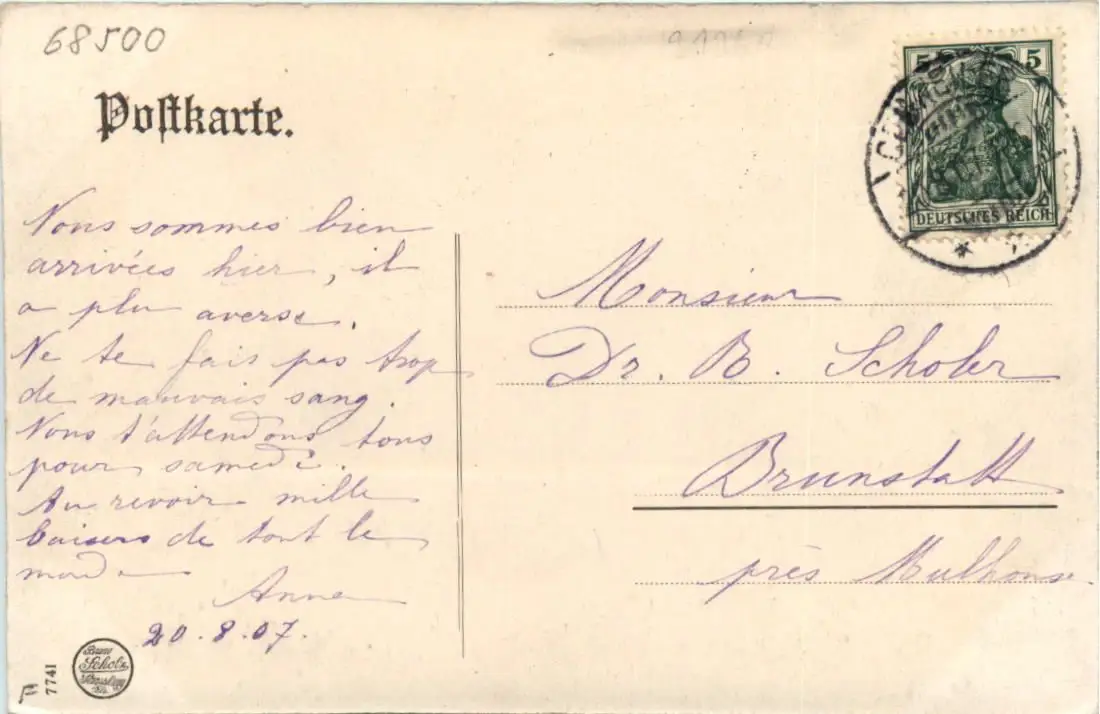 68500
Postkarte.
5 5
DEUTSCHES REICH
Nous sommes bien
arrivées hier, il
a plu averse.
Ne te fais pas trop
de mauvais sang.
Nous t'attendons tous
pour samedi.
Au revoir mille
baisers de tout le
monde
Anne
20.8.07.
Monsieur
Dr. B. Scholer
Brunstatt
près Mulhouse
Scholz
7741